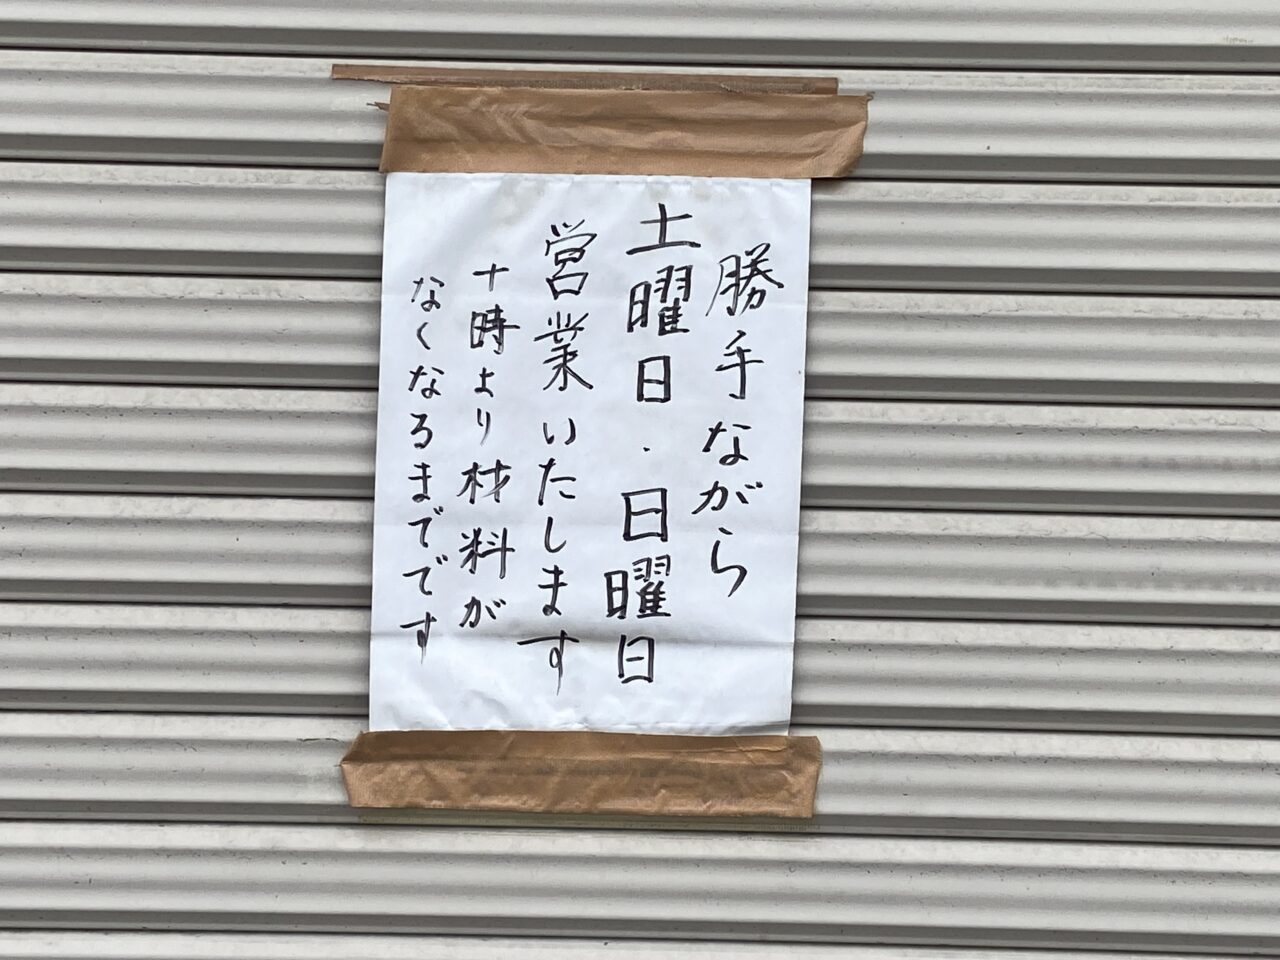 勝手ながら
土曜日・日曜日
営業いたします
十時より材料が
なくなるまでです